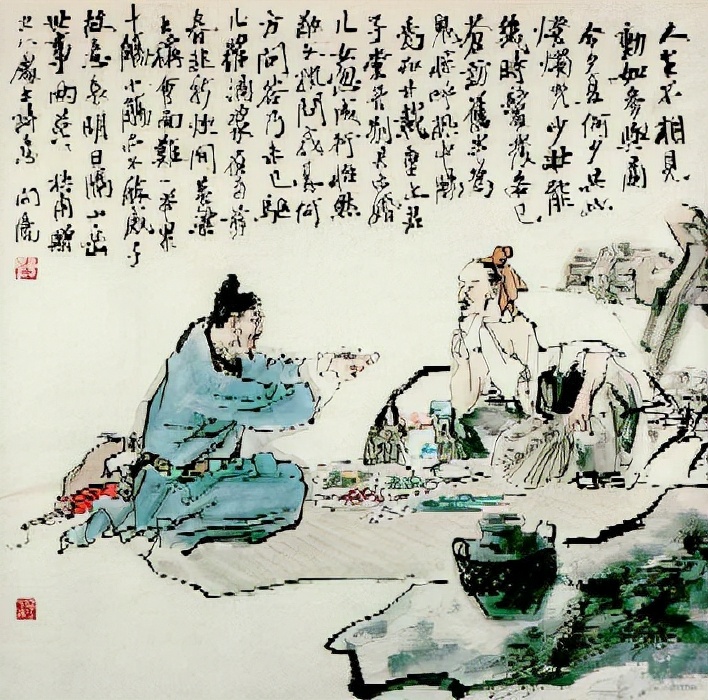 人生不相見
動如參與商
今夕是何夕共此
燈燭光少壯能
幾時鬢髮各已
蒼訪舊半為
鬼驚呼熱中腸
焉知廿載重上君
子堂昔別君未婚
兒女忽成行怡然
敬父執問我來何
方問答乃未已驅
兒羅酒漿夜雨翦
春韭新炊間黃粱
主稱會面難一舉累
十觴十觴亦不醉感子
故意長明日隔山岳
世事兩茫茫 杜甫贈
衛八處士詩意